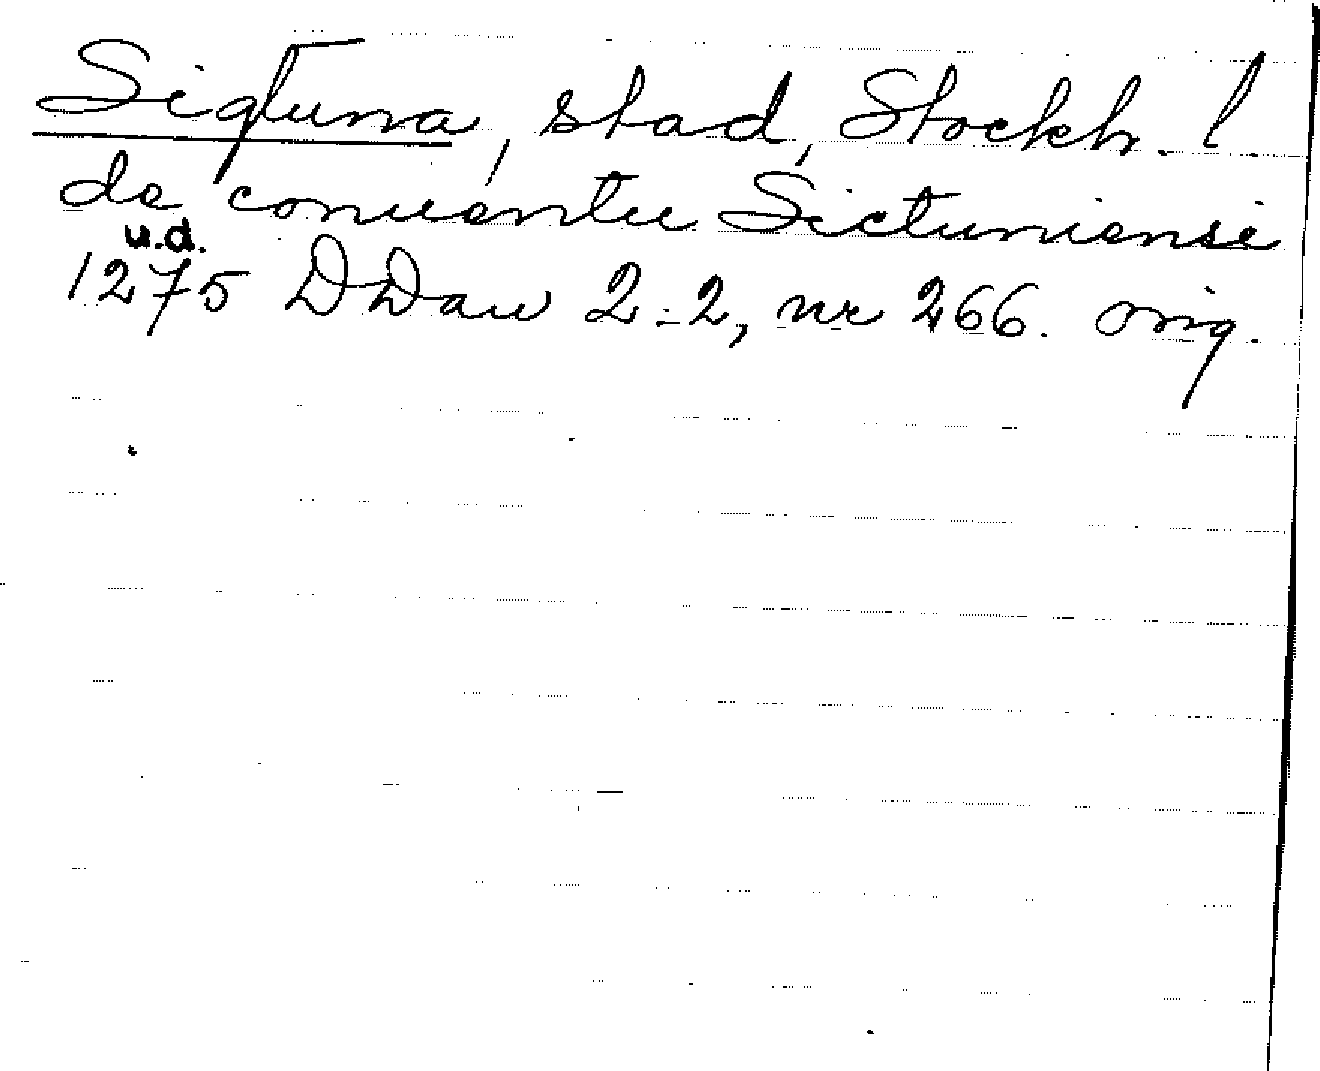 Sigtuna, stad, Stockh. l
de conuentu Sictuniensi
u.d.
1275 DDan 2:2, nr 266. orig.